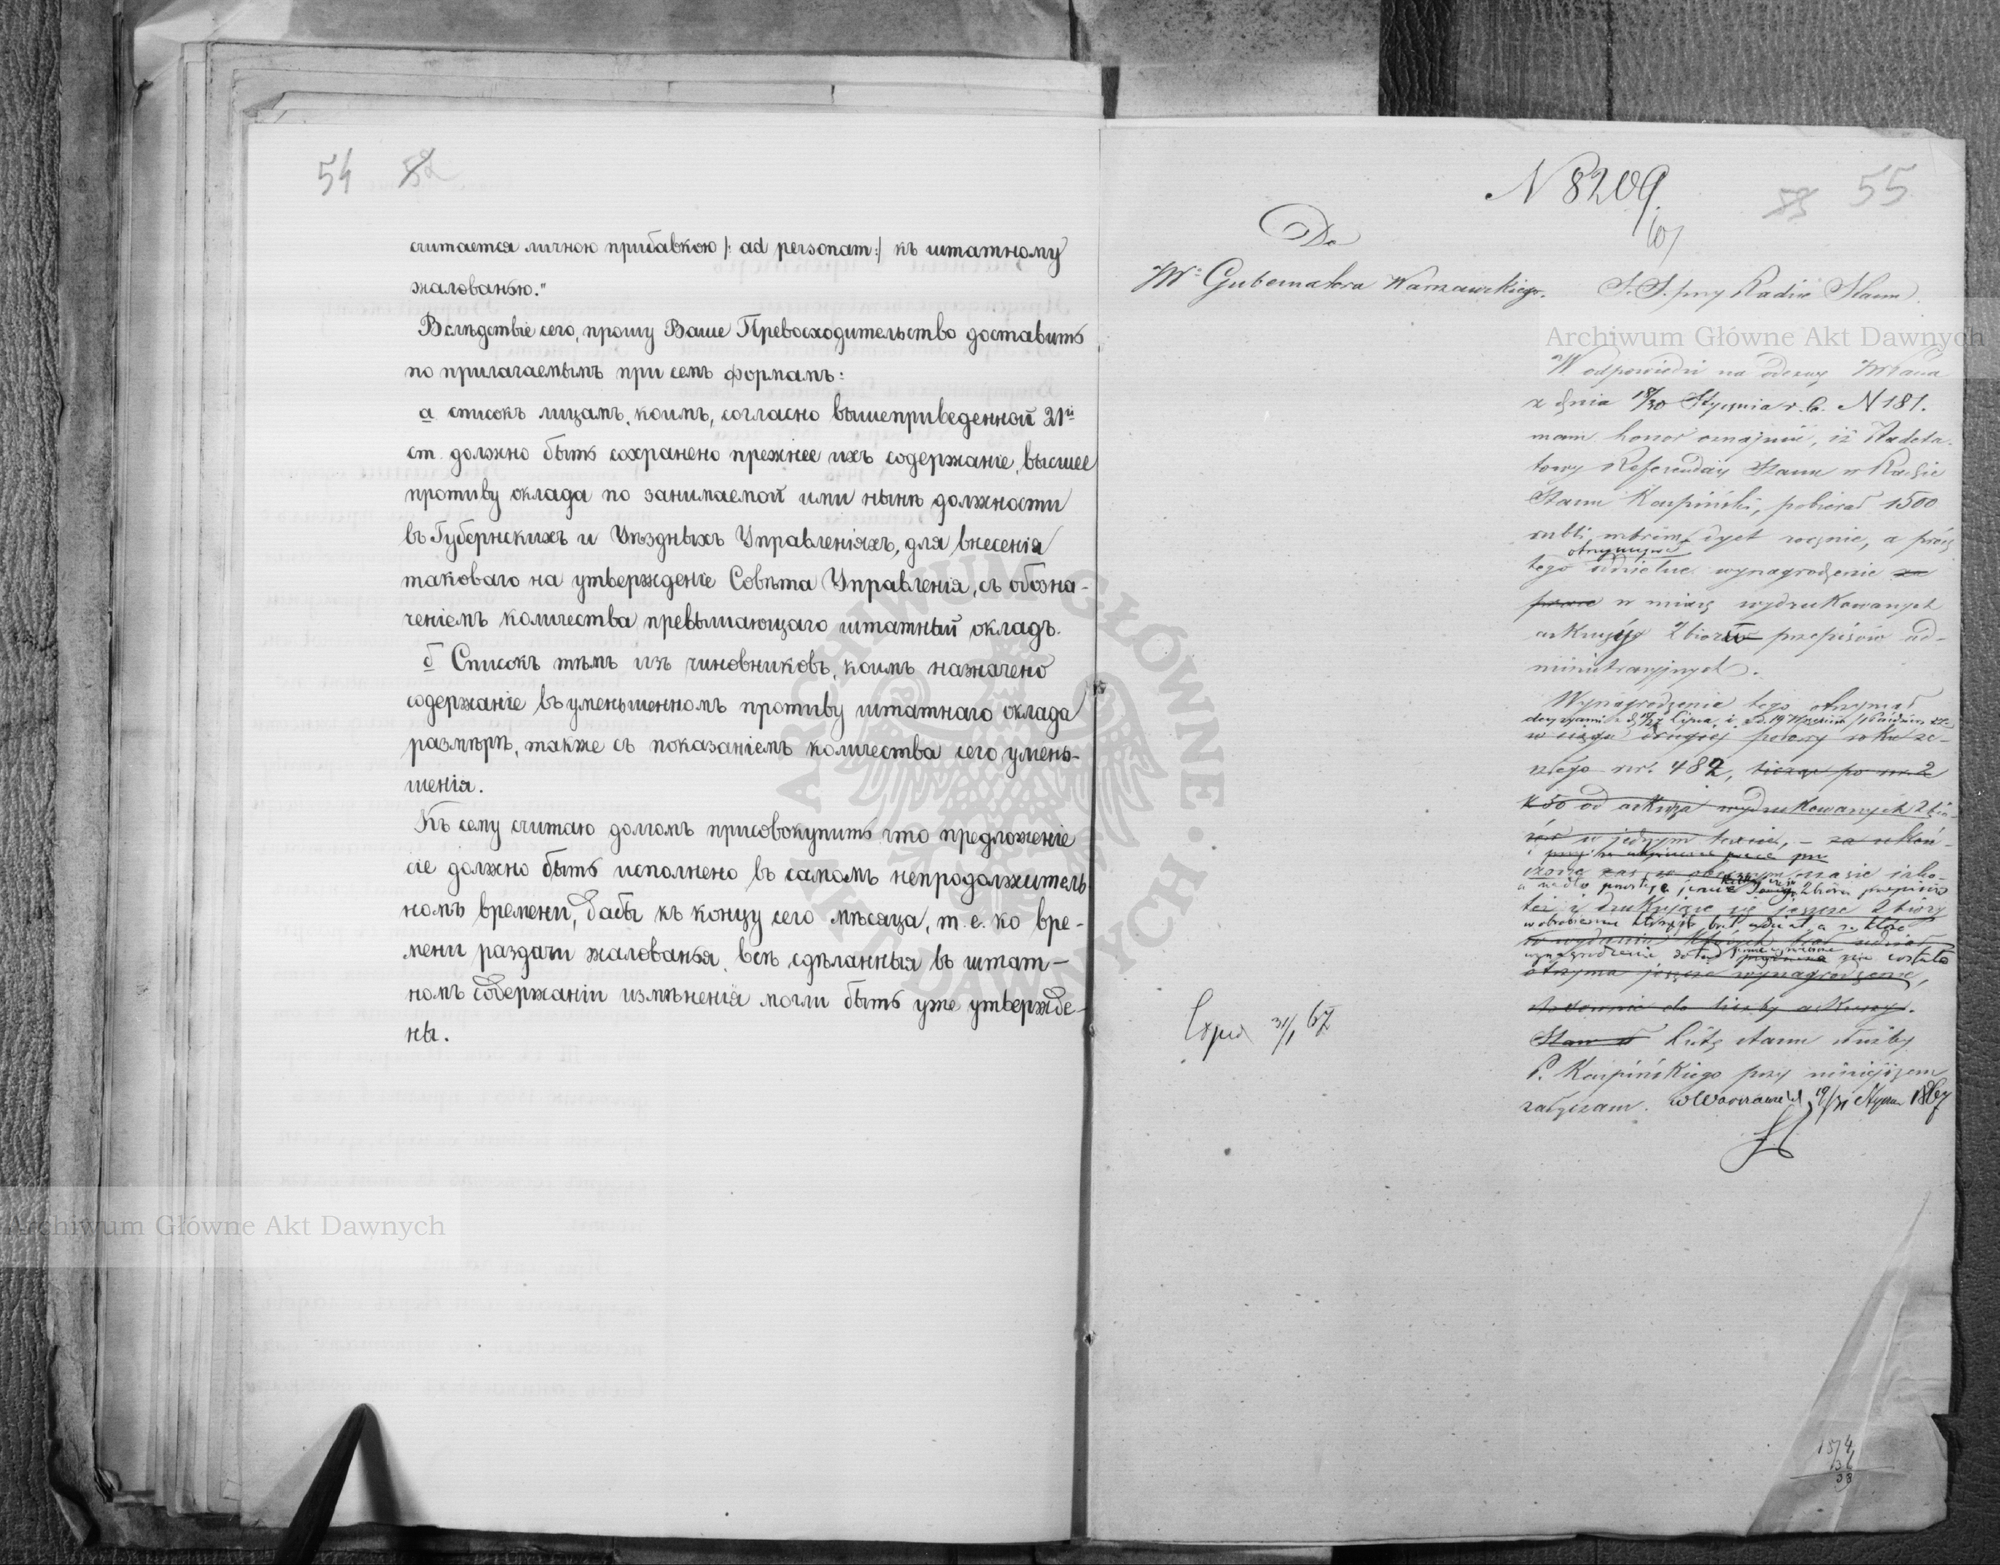 54 52
считается личною прибавкою /: ad personam :/ къ штатному
жалованью."
Вслѣдствіе сего, прошу Ваше Превосходительство доставить
по прилагаемымъ при семъ формамъ:
а списокъ лицамъ, коимъ, согласно вышеприведенной 21й
ст. должно быть сохранено прежнее ихъ содержаніе, высшее
противу оклада по занимаемой ими нынѣ должности
въ Губернскихъ и Уѣздныхъ Управленіяхъ, для внесенія
таковаго на утвержденіе Совѣта Управленія, съ обозна-
ченіемъ количества превышающаго штатный окладъ.
б Списокъ тѣмъ изъ чиновниковъ, коимъ назначено
содержаніе въ уменьшенномъ противу штатнаго оклада
размѣрѣ, также съ показаніемъ количества сего умень-
шенія.
Къ сему считаю долгомъ присовокупить что предложеніе
сіе должно быть исполнено въ самомъ непродолжитель-
номъ времени, дабы къ концу сего мѣсяца, т. е. ко вре-
мени раздачи жалованья, всѣ сдѣланныя въ штат-
номъ содержаніи измѣненія могли быть уже утвержде-
ны.
Archiwum Główne Akt Dawnych
ARCHIWUM GŁÓWNE AKT DAWNYCH
N 8209
53 55
Do
JW Gubernatora Warszawskiego.
S. S. przy Radzie Stanu
Archiwum Główne Akt Dawnych
W odpowiedzi na odezwę JWPana
z dnia 18/30 Stycznia r. b. N 181.
mam honor oznajmić, iż Nadeta-
towy Referendarz Stanu w Radzie
Stanu Karpiński, pobierał 1500
rubli srebrem dyet rocznie, a prócz
otrzymywał
tego udzielne wynagrodzenie za
prace w miarę wydrukowanych
arkuszy Zbioru przepisów ad-
ministracyjnych.
Wynagrodzenia tego otrzymał
w ciągu drugiej połowy roku ze-
szłego rsr. 482, licząc po rsr. 2
k 50 od arkusza wydrukowanych
w jednym
otrzyma jeszcze wynagrodzenie,
stosownie do liczby arkuszy.
Stan s Listę stanu służby
P. Karpińskiego przy niniejszem
załączam. w Warszawie d 19/31 Stycznia 1867
Exped 31/1 67